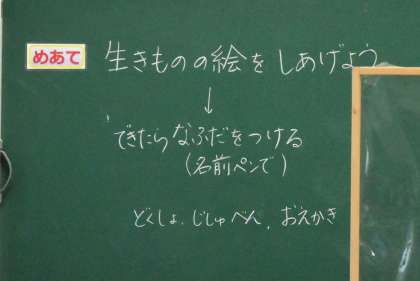 めあて 生きものの絵をしあげよう
↓
できたらなふだをつける
(名前ペンで)
どくしょ、じしゅべん、おえかき